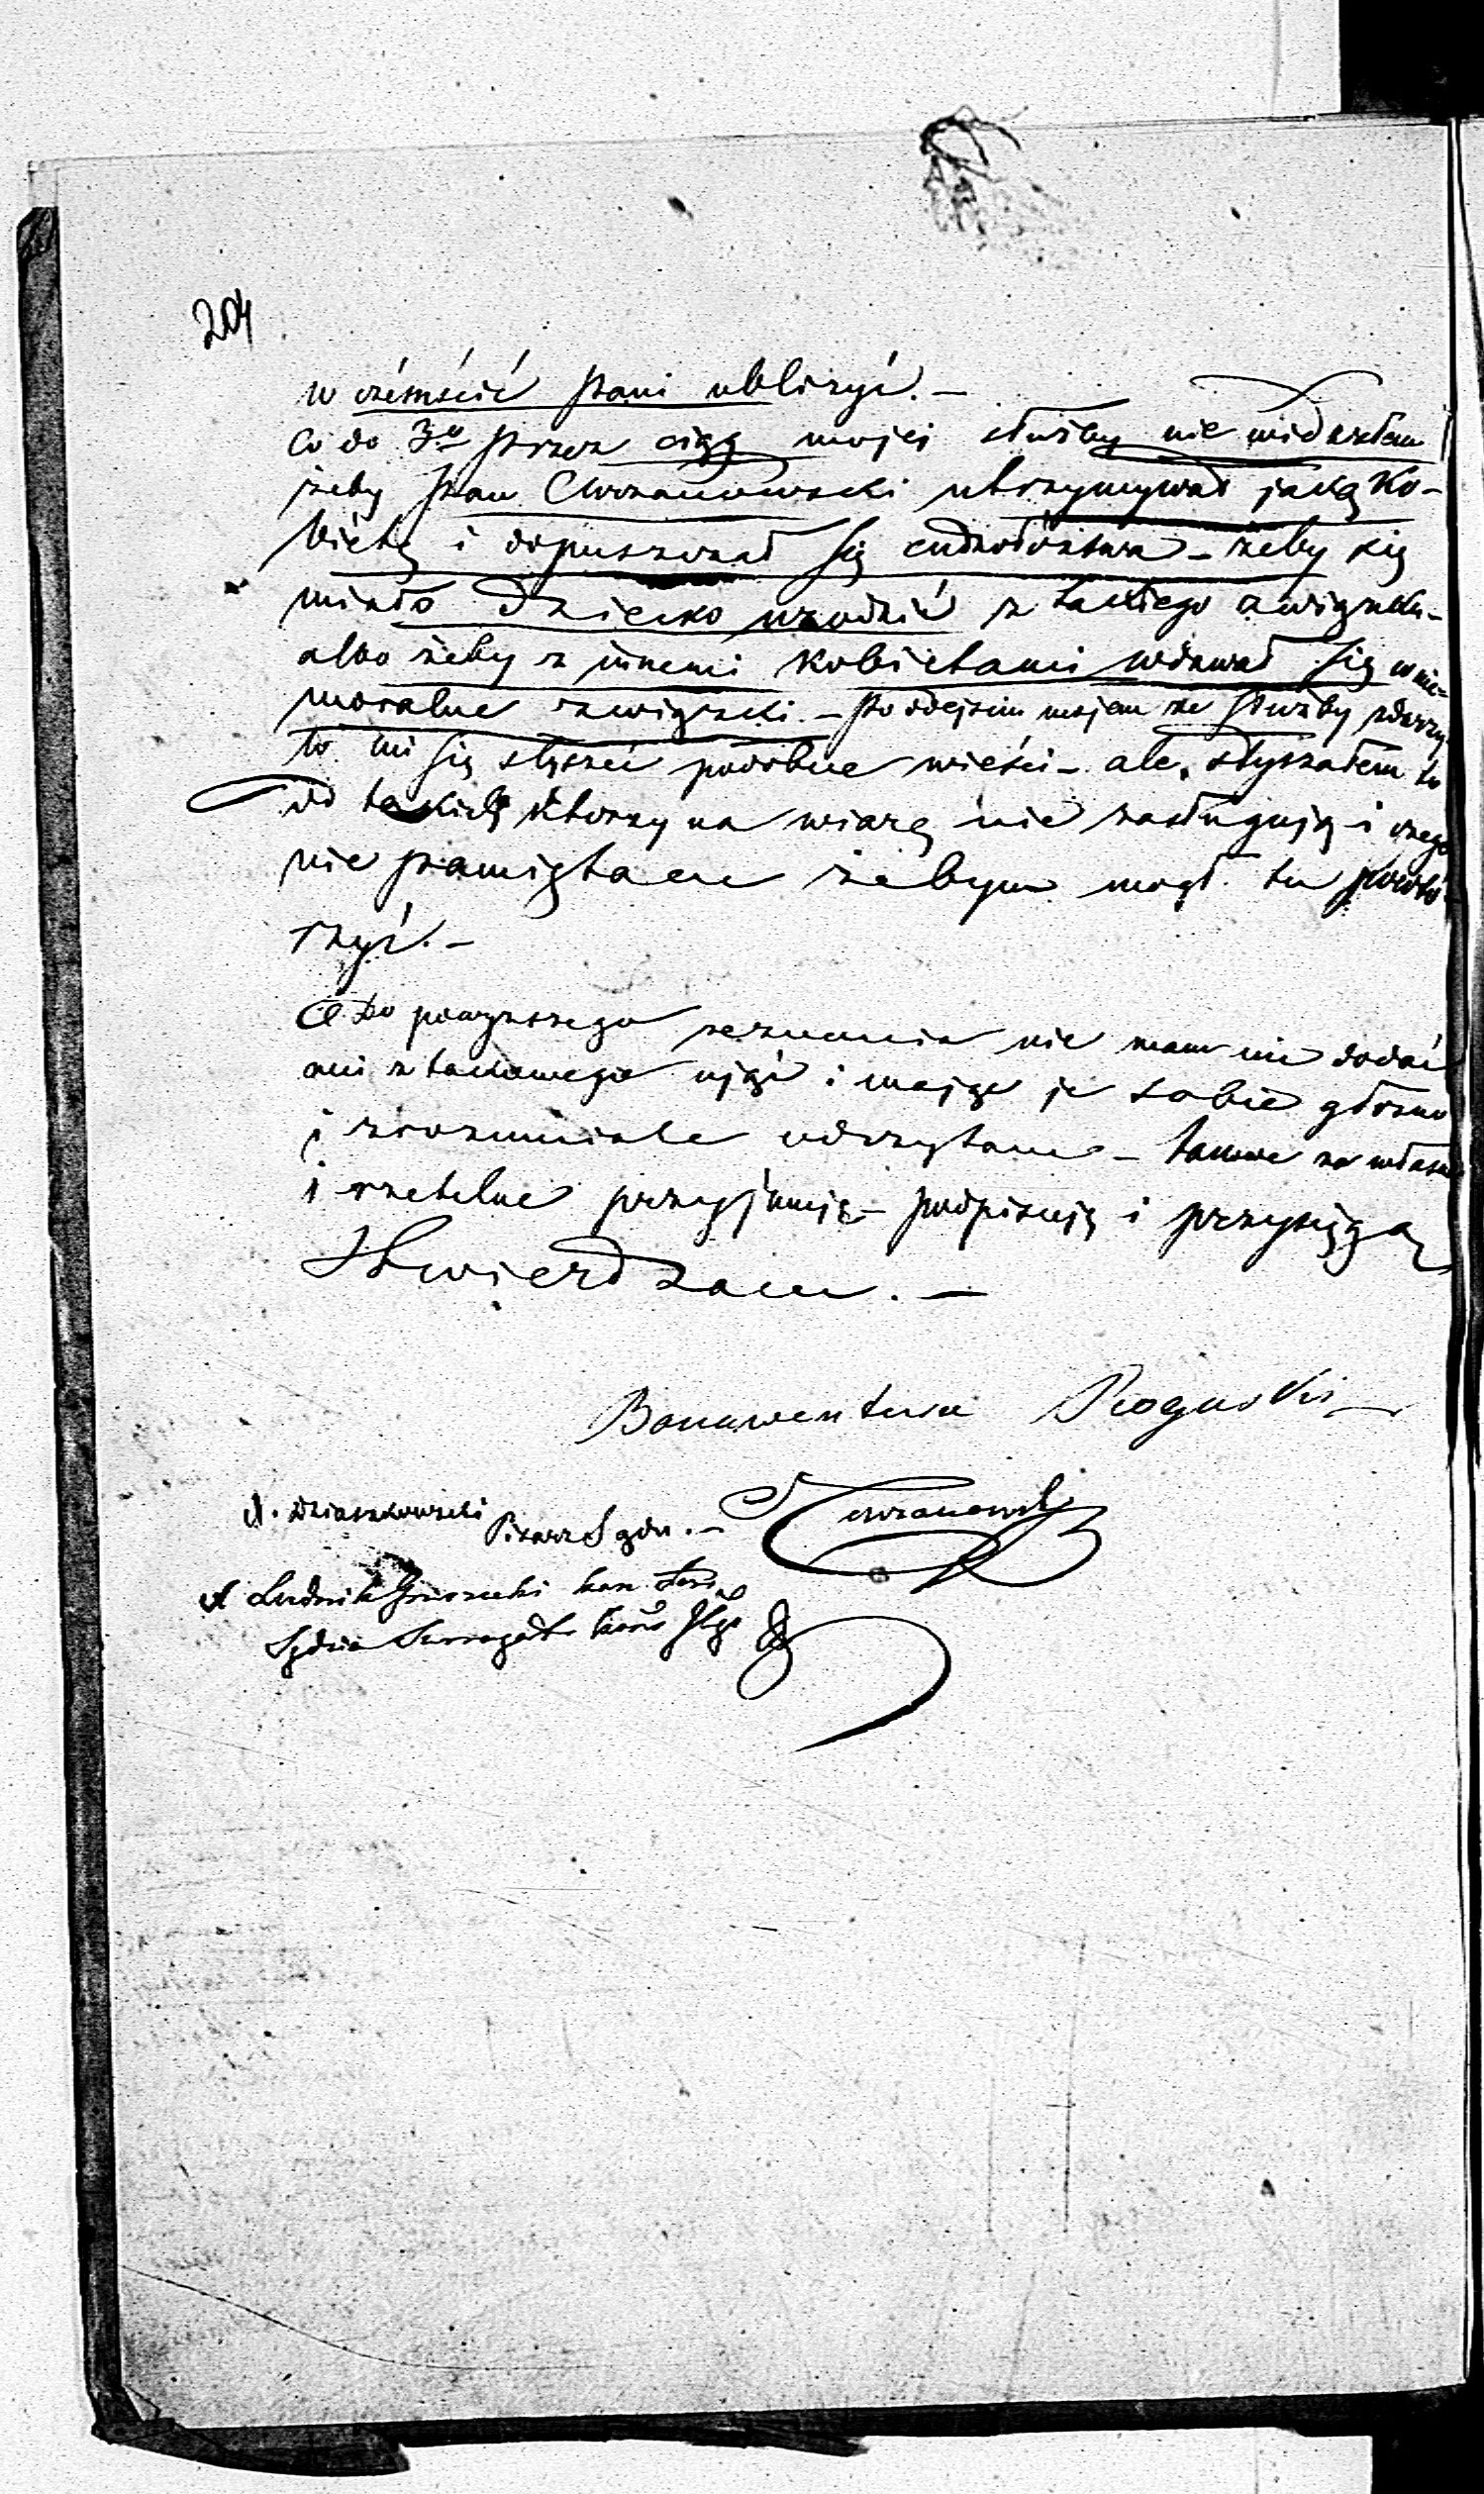 204
w czémściś pani ubliżyć. –
Co do 3º przez ciąg mojej służby nie widziałem
żeby pan Chrzanowski utrzymywał jaką Ko-
biétę i dopuszczał się cudzołóztwa – żeby się
miało dziecko urodzić z takiego związku –
albo żeby z innemi kobiétami wdawał się w nie-
moralne związki. – Po odejściu mojem ze służby zdarzy-
ło mi się słyszeć podobne wieści – ale, słyszałem to
od takich którzy na wiarę nie zasługują – i czego
nie pamiętam żebym mógł tu powtó-
rzyć. –
Do powyższego zeznania nie mam nic dodać
ani z takowego ująć i mając je sobie głośno
i zrozumiale odczytane – takowe za własne
i rzetelne przyjmuję – podpisuję i przysięgą
stwierdzam. –
Bonawentura Rogowski
A. Dziaszkowski Pisarz Sądu. – Chrzanowski
X Ludwik
Sędzia Surrogat